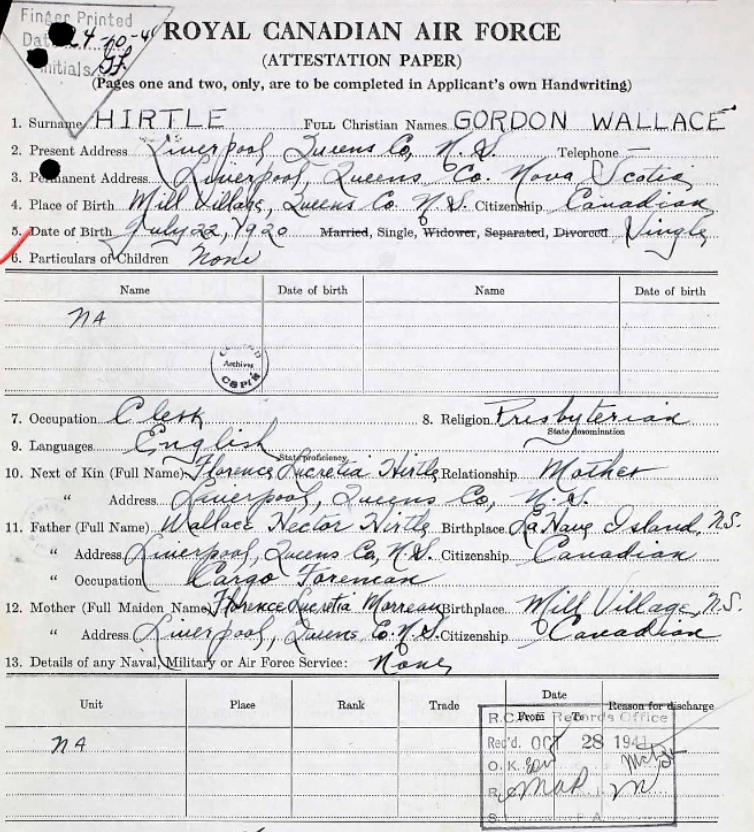 Finger Printed
Date 24-10-4
Initials
ROYAL CANADIAN AIR FORCE
(ATTESTATION PAPER)
(Pages one and two, only, are to be completed in Applicant's own Handwriting)
1. Surname HIRTLE FULL Christian Names GORDON WALLACE
2. Present Address Liverpool, Queens Co, N.S. Telephone —
3. Permanent Address Liverpool, Queens Co. Nova Scotia
4. Place of Birth Mill Village, Queens Co. N.S. Citizenship Canadian
5. Date of Birth July 22, 1920 Married, Single, Widower, Separated, Divorced Single
6. Particulars of Children None
Name Date of birth Name Date of birth
NA
Archives
7. Occupation Clerk 8. Religion Presbyterian
State denomination
9. Languages English
State proficiency
10. Next of Kin (Full Name) Florence Lucretia Hirtle Relationship Mother
" Address Liverpool, Queens Co, N.S.
11. Father (Full Name) Wallace Hector Hirtle Birthplace La Have Island, N.S.
" Address Liverpool, Queens Co, N.S. Citizenship Canadian
" Occupation Cargo Foreman
12. Mother (Full Maiden Name) Florence Lucretia Morreau Birthplace Mill Village, N.S.
" Address Liverpool, Queens Co. N.S. Citizenship Canadian
13. Details of any Naval, Military or Air Force Service: None
Unit Place Rank Trade Date From To Reason for discharge
NA
R.C.A.F. Records Office
Rec'd. OCT 28 1941
O.K.
R.
S. P.A.